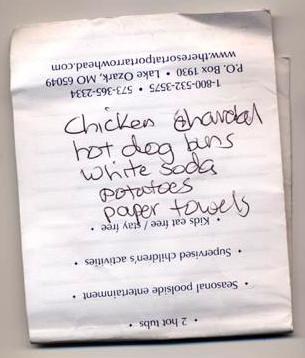 www.theresortatportarrowhead.com
P.O. Box 1930 • Lake Ozark, MO 65049
1-800-532-3575 • 573-365-2334
Chicken
hot dog buns
white soda
potatoes
paper towels
Kids eat free / stay free •
Supervised children's activities •
Seasonal poolside entertainment •
• 2 hot tubs •